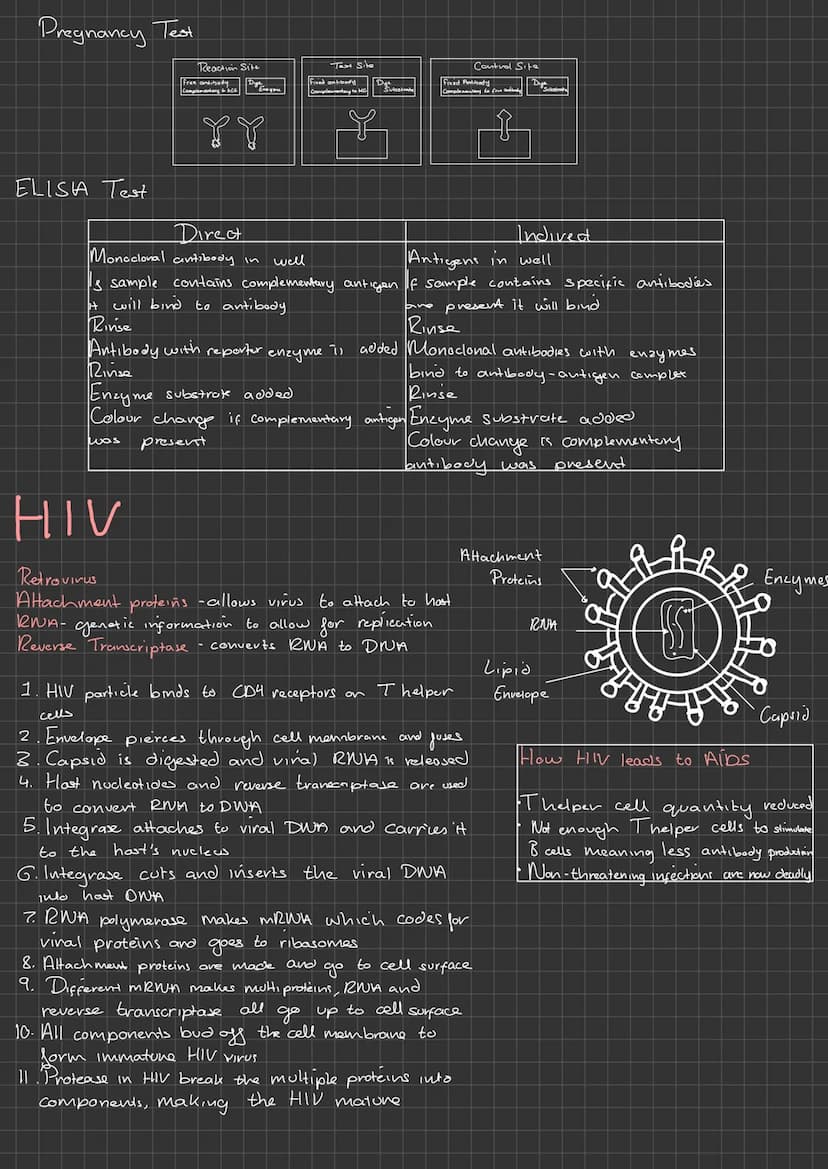 Pregnancy Test
Reaction Site
Free antibody
Complementary to hCG
Dye
Enzyme
Test Site
Fixed antibody
Complementary to
Dye
Substrate
Control Site
Fixed Antibody
Complementary to free antibody
Dye
Substrate
ELISA Test
Direct
Monoclonal antibody in well
If sample contains complementary antigen
it will bind to antibody
Rinse
Antibody with reporter enzyme is added
Rinse
Enzyme substrate added
Colour change if complementary antigen
was present
Indirect
Antigens in well
If sample contains specific antibodies
are present it will bind
Rinse
Monoclonal antibodies with enzymes
bind to antibody-antigen complex
Rinse
Enzyme substrate added
Colour change is complementary
antibody was present
HIV
Retrovirus
Attachment proteins - allows virus to attach to host
RNA - genetic information to allow for replication
Reverse Transcriptase - converts RNA to DNA
1. HIV particle binds to CD4 receptors on T helper
cells
2. Envelope pierces through cell membrane and fuses
3. Capsid is digested and viral RNA is released
4. Host nucleotides and reverse transcriptase are used
to convert RNA to DNA
5. Integrase attaches to viral DNA and carries it
to the host's nucleus
6. Integrase cuts and inserts the viral DNA
into host DNA
7. RNA polymerase makes mRNA which codes for
viral proteins and goes to ribosomes
8. Attachment proteins are made and go to cell surface
9. Different mRNA makes multi proteins, RNA and
reverse transcriptase all go up to cell surface
10. All components bud off the cell membrane to
form immature HIV virus
11. Protease in HIV break the multiple proteins into
components, making the HIV mature
Attachment
Proteins
RNA
Lipid
Envelope
Enzymes
Capsid
How HIV leads to Aids
• T helper cell quantity reduced
• Not enough T helper cells to stimulate
B cells meaning less antibody production
• Non-threatening infections are now deadly